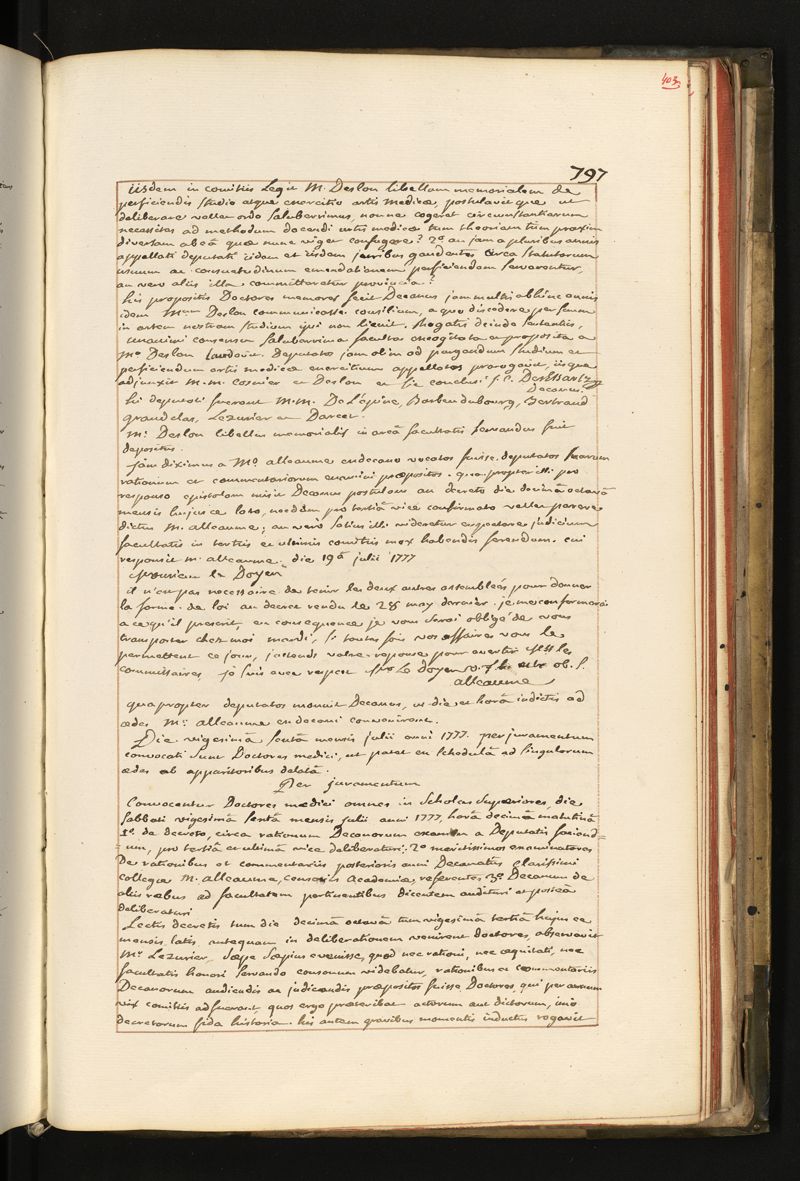 403
797
iisdem in comitiis Legit M. Deslon libellum memorialem de
perficiendis studio atque exercitio artis medicæ, postulavitque ut
deliberare vellet ordo saluberrimus, nonne cogeret circumstantiarum
necessitas ad methodum docendi artis medicæ tum theoriam tum praxim
diversam ab eâ quæ nunc viget confugere? 2º an jam a pluribus annis
appellati deputati iidem et iisdem juribus gaudentes circa statutorum
usuum ac consuetudinum emendationem perficiendam servarentur,
an vero aliis illa committeretur provincia?
his propositis Doctores memores fecit Decanus jam multis abhinc annis
idem Mum Deslon communicasse consilium, a quo discedere per summum
in artem nostram studium ipsi non licuit. Rogatis deinde sententiis,
unanimi consensu saluberrima facultas excogitata ac proposita a
Mo Deslon laudavit. Deputatos jam olim ad purgandum studium et
perficiendum artis medicæ exercitium appellatos prorogavit, iisque
adjunxit M.M. Cosnier et Deslon et sic conclusi. f. l. DesEssartz
Decanus.
hi deputati fuerunt M.M. De L'épine, Barbeu dubourg, Bertrand
grandclas, Lezurier et Darcet.
Mi Deslon libellus memorialis in arcâ facultatis servandus fuit
depositus.
jam diximus a Mo alleaume exdecano vocatos fuisse deputatos suarum
rationum et commentariorum examini præpositos. quapropter illi pro
responso epistolam misit Decanus postulans an decreto die decimâ octavâ
mensis hujusce lato, necdum pro tertiâ vice confirmato vellet parere
dictus M. alleaume; an verò satius illi videretur expectare judicium
facultatis in tertiis et ultimis comitiis mox habendis ferendum. cui
responsit M. alleaume. die 19â julii 1777
Monsieur le Doyen
il n'est pas necessaire de tenir les deux autres assemblées pour donner
la forme de loi au decret rendu le 28 may dernier. je me conformerai
a ce qu'il prescrit, en consequence je vous serai obligé de vous
transporter chez moi mardi, si toutes fois vos affaires vous le
permettent ce jour, j'attends votre reponse pour avertir MM les
commissaires, je suis avec respect Mr le doyen v. t. h. et tr ob. S.
alleaume
quapropter deputatos monuit Decanus, ut die et horâ indictis ad
ædes Mi alleaume exdecani convenirent.
Die vigesimâ sextâ mensis julii anni 1777. per juramentum
convocati sunt Doctores medici, ut patet ex schedulâ ad singulorum
ædes ab apparitoribus delatâ.
Per juramentum
Convocentur Doctores medici omnes in Scholas Superiores, die
sabbati vigesimâ sextâ mensis julii anni 1777. horâ decimâ matutinâ
1º. de decreto, circa rationum Decanorum examen a Deputatis faciend=
=um, pro tertiâ et ultimâ vice deliberaturi; 2º meritissimos examinatores
De rationibus et commentariis posterioris anni Decanatûs clarissimi
collegæ M. alleaume, censoris Academiæ, referentes 3º Decanum de
aliis rebus ad facultatem pertinentibus dicentem audituri et posteà
deliberaturi
Lectis decretis tum die decimâ octavâ tum vigesimâ tertiâ hujusce
mensis latis, antequam in deliberationem venirent doctores, observavit
Mr Lezurier, sæpe sæpius evenisse, quod nec rationi, nec æquitati, nec
facultatis honori servando consonum videbatur, rationibus et commentariis
Decanorum audiendis ac judicandis præpositos fuisse Doctores, qui per annum
vix comitiis adfuerant, quos ergo præteribat actorum aut dictorum, imò
decretorum fida historia. his autem gravibus momentis inductus rogavit